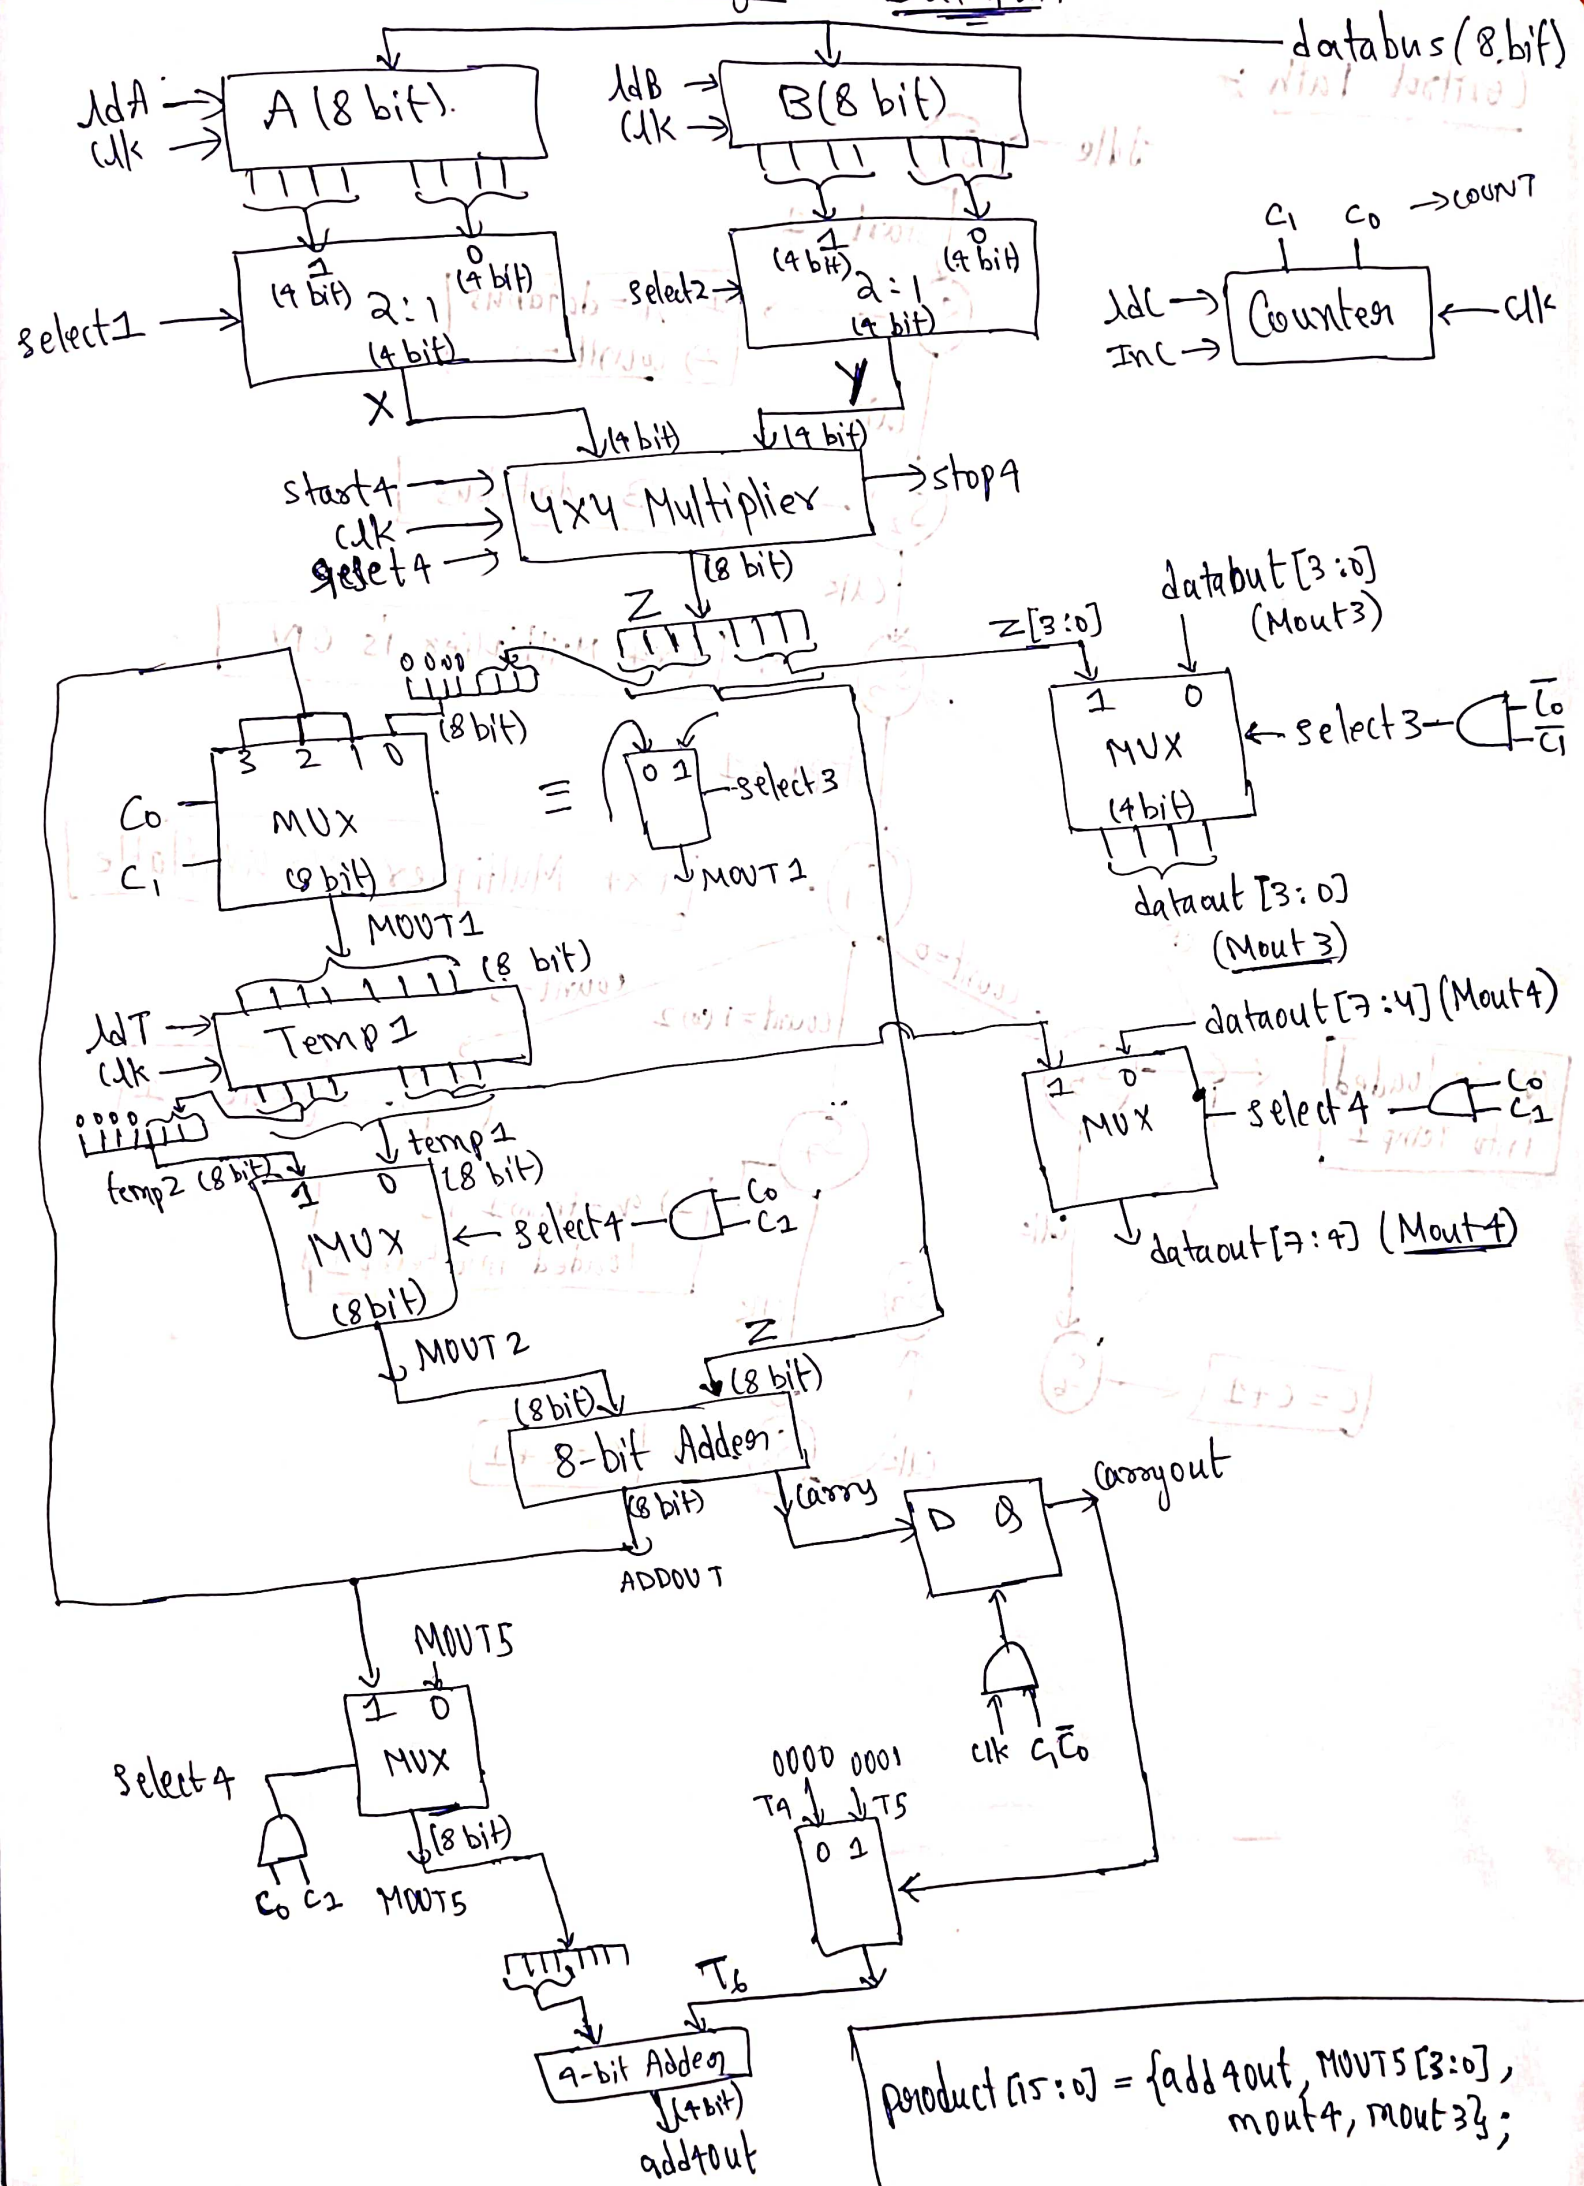 databus (8.bit)
ldA
clk
A (8 bit).
ldB
Clk
B(8 bit)
1
(4 bit)
0
(4 bit)
2:1
(4 bit)
select1
1
(4 bit)
0
(4 bit)
2:1
(4 bit)
select2
C1 C0 → COUNT
ldC
InC
Counter
clk
X
Y
(4 bit)
(4 bit)
start4
clk
reset4
4x4 Multiplier
stop4
(8 bit)
Z
Z[3:0]
databut [3:0]
(Mout3)
1 0
MUX
(4bit)
select3
C̅0
C̅1
dataout [3:0]
(Mout 3)
0 0 0 0
(8 bit)
3 2 1 0
MUX
(8 bit)
C0
C1
≡
0 1
select3
MOUT1
MOUT1
(8 bit)
ldT
clk
Temp1
0 0 0 0
temp2 (8 bit)
temp1
(8 bit)
1 0
MUX
(8bit)
select4
C0
C1
dataout [7:4] (Mout4)
1 0
MUX
select4
C0
C1
dataout [7:4] (Mout4)
MOUT2
Z
(8bit)
(8 bit)
8-bit Adder
(8 bit)
carry
ADDOUT
D Q
carryout
clk C1C̅0
MOUT5
1 0
MUX
select4
C0 C1
(8 bit)
MOUT5
0000 0001
T4 T5
0 1
T6
4-bit Adder
(4bit)
add4out
product [15:0] = {add4out, MOUT5[3:0],
mout4, mout3};